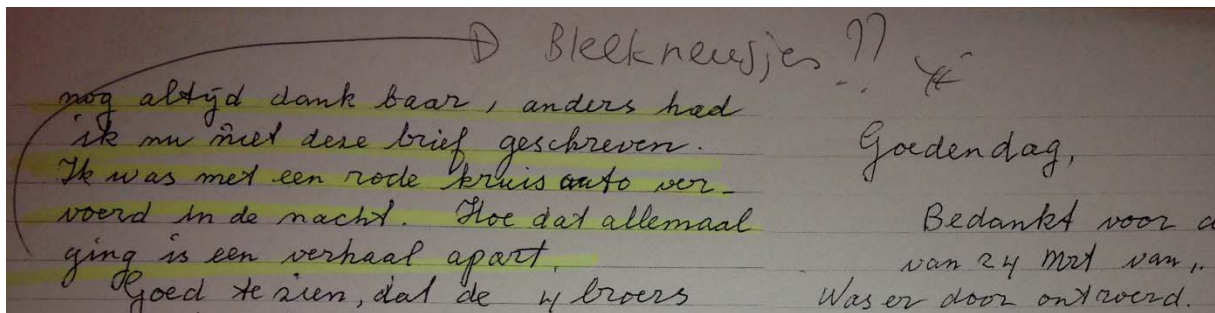 Bleekneusjes??
nog altijd dank baar, anders had
ik nu niet deze brief geschreven.
Ik was met een rode kruis auto ver-
voerd in de nacht. Hoe dat allemaal
ging is een verhaal apart.
Goed te zien, dat de 4 broers
Goedendag,
Bedankt voor
van 24 mrt van,,
Was er door ontroerd.